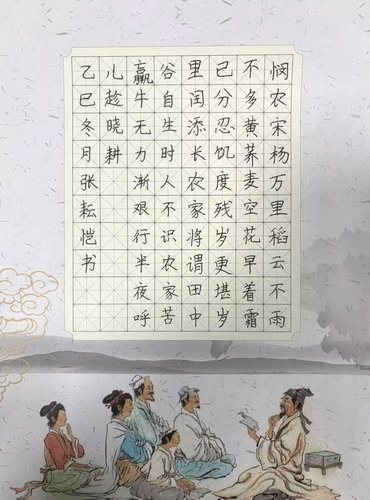 悯农宋杨万里稻云不雨
不多黄荞麦空花早着霜
已分忍饥度残岁更堪岁
里闰添长农家将谓田中
谷自生时人不识农家苦
赢牛无力渐艰行半夜呼
儿趁晓耕
乙巳冬月张耘恺书